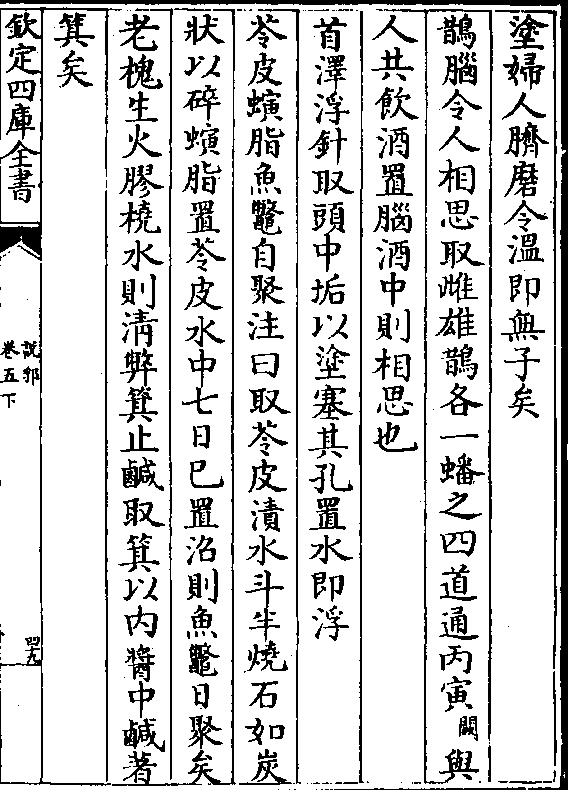 塗婦人臍磨令溫即無子矣
鵲腦令人相思取雌雄鵲各一蟠之四道通丙寅闕與
人共飲酒置腦酒中則相思也
首澤浮針取頭中垢以塗塞其孔置水即浮
苓皮螾脂魚鼈自聚注曰取苓皮漬水斗半燒石如炭
狀以碎螾脂置苓皮水中七日已置沼則魚鼈日聚矣
老槐生火膠橈水則清弊箕止鹹取箕以内醬中鹹著
箕矣
欽定四庫全書
說郛
卷五下
四九